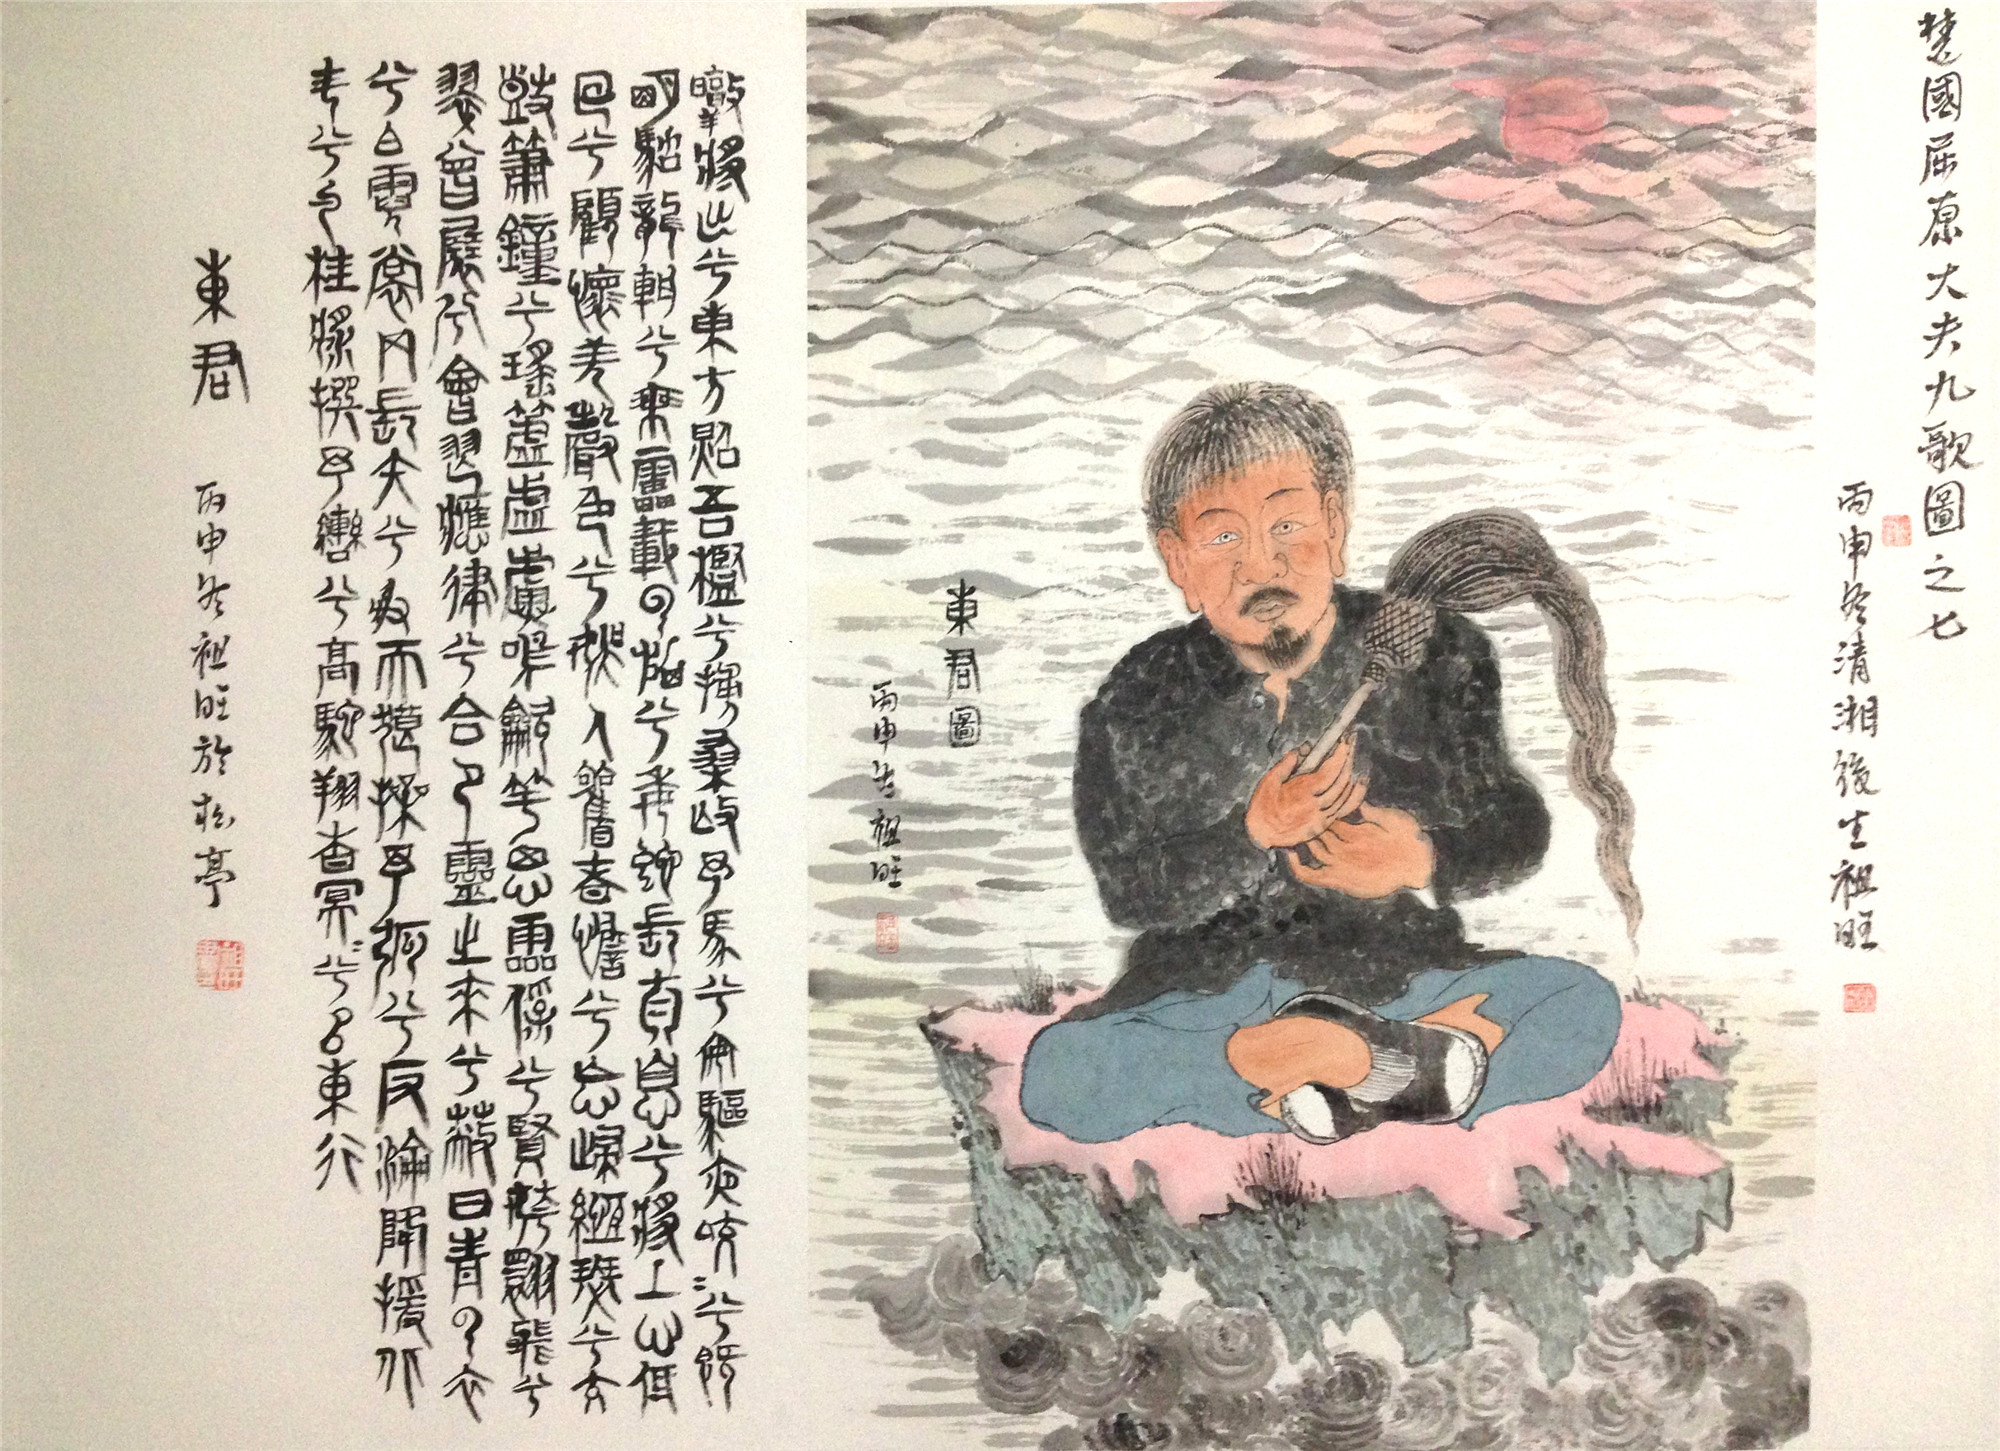 楚國屈原大夫九歌圖之七
丙申冬清湘後生祖旺
東君圖
丙申 祖旺
暾將出兮東方照吾檻兮扶桑撫予馬兮安驅夜皎〻兮既
明駕龍輈兮乘靁載雲旗兮委蛇長太息兮將上心低
回兮顧懷羌聲色兮娛人觀者憺兮忘歸緪瑟兮交
鼓簫鐘兮瑤簴 鳴 竽思靈保兮賢姱翾飛兮
翠曾展詩兮會舞應律兮合節靈之來兮蔽日青雲衣
兮白霓裳 長矢兮射天狼操予弧兮反淪降援北
斗兮酌桂漿撰予轡兮高駝翔杳冥〻兮以東行
東君
丙申冬祖旺於松亭